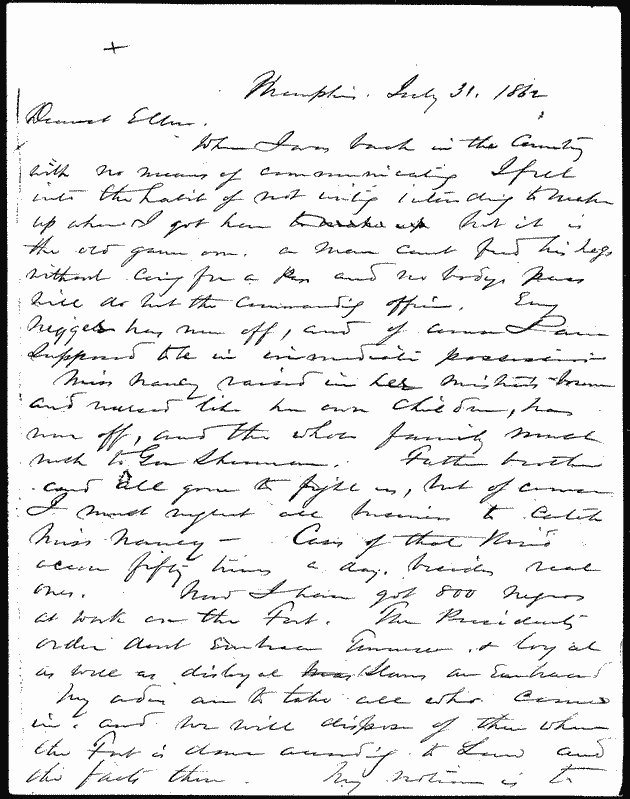 +
Memphis. July 31. 1862
Dearest Ellen.
When I was back in the Country
with no means of communicating I fell
into the habit of not writing intending to make
up when I got here to make up but it is
the old game over. a man cant find his legs
without coming for a Pass and no bodys pass
will do but the commanding officer. Every
negger has run off, and of course I am
supposed to be in immediate possession
Miss Nancy raised in her mistress bosom
and nursed like her own children, has
run off, and the whole family must
rush to Gen Sherman. Father brother
and all gone to fight us, but of course
I must neglect all business to catch
Miss Nancy - Cases of that kind
occur fifty times a day. besides real
ones. Now I have got 800 negros
at work on the Fort. The Presidents
order dont Embrace Tennessee. & loyal
as well as disloyal Slaves are Embraced
My orders are to take all who comes
in. and we will dispose of them when
the Fort is done according to Law and
the facts then. My notion is to